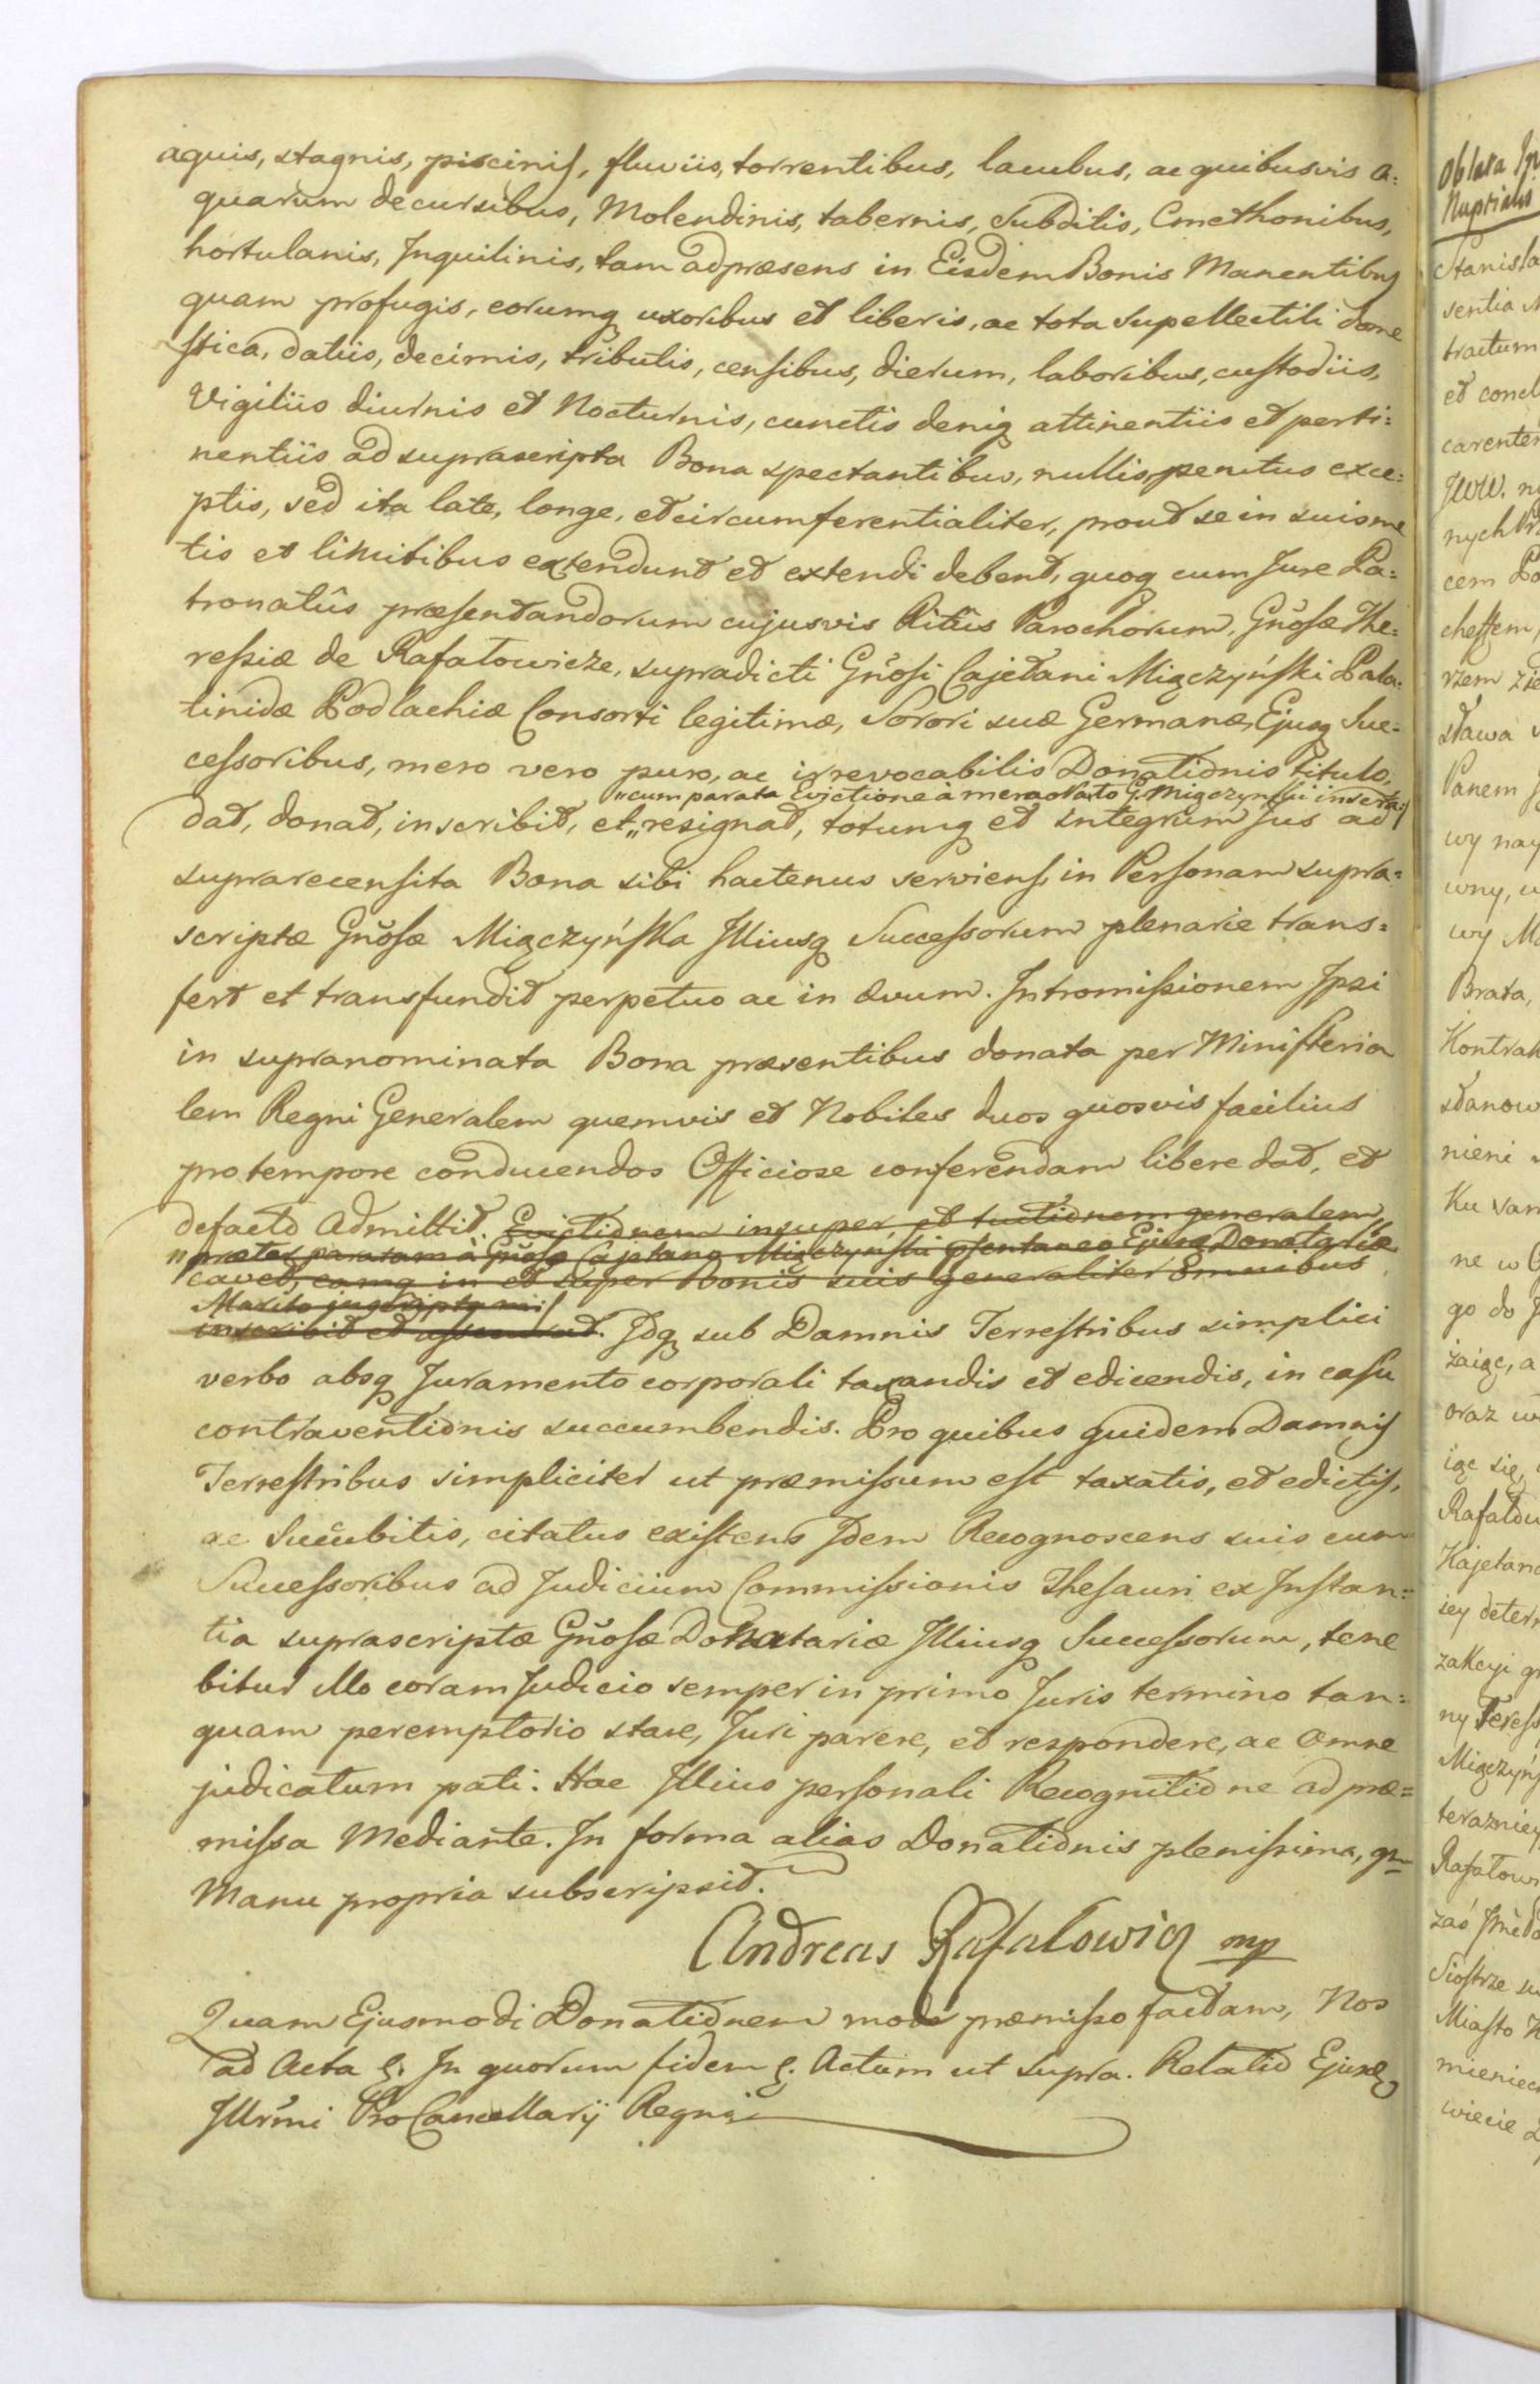 aquis, stagnis, piscinis, fluviis, torrentibus, lacubus, ac quibusvis a=
quarum decursibus, Molendinis, tabernis, Subditis, Cmethonibus,
hortulanis, Inquilinis, tam ad præsens in Eisdem Bonis Manentibus
quam profugis, eorumq uxoribus et liberis, ac tota supellectili dome
stica, datiis, decimis, tributis, censibus, dierum, laboribus, custodiis,
Vigiliis diurnis et Nocturnis, cunctis deniq attinentiis et perti=
nentiis ad suprascripta Bona spectantibus, nullis penitus exce=
ptis, sed ita late, longe, et circumferentialiter, prout se in suis me
tis et limitibus extendunt et extendi debent, quoq cum Jure Pa=
tronatûs præsentandorum cujusvis Ritûs Parochorum, Gnosæ The=
ressiæ de Rafałowicze, supradicti Gnosi Cajetani Miączyński Pala=
tinidæ Podlachiæ Consorti legitimæ, Sorori suæ Germanæ, Ejusq Suc=
cessoribus, mero vero puro, ac irrevocabilis Donationis titulo,
"cum parata Evictione à memorato G. Miączyński inserta:/
dat, donat, inscribit, et "resignat, totumq et integrum Jus ad
suprarecensita Bona sibi hactenus serviens, in Personam supra=
scriptæ Gnosæ Miączyńska Illiusq Successorum plenarie trans=
fert et transfundit perpetuo ac in ævum. Intromissionem Ipsi
in supranominata Bona præsentibus donata per Ministeria
lem Regni Generalem quemvis et Nobiles duos quosvis facilius
pro tempore conducendos Officiose conferendam libere dat, et
defacto Admittit. Evictionem insuper et tuitionem generalem,
"præter paratam à Gnoso Cajetano Miączyński Ejusq Donatariæ
cavet, eamq in et super Bonis suis generaliter omnibus
Marito
inscribit et. Idq sub Damnis Terrestribus simplici
verbo absq Juramento corporali taxandis et edicendis, in casu
contraventionis succumbendis. Pro quibus quidem Damnis
Terrestribus simpliciter ut præmissum est taxatis, et edictis,
ac Succubitis, citatus existens Idem Recognoscens suis cum
Successoribus ad Judicium Commissionis Thesauri ex Instan=
tia suprascriptæ Gnosæ Donatariæ Illiusq Successorum, tene
bitur illo coram Judicio semper in primo Juris termino tan=
quam peremptorio stare, Juri parere, et respondere, ac Omne
judicatum pati. Hac Illius personali Recognitione ad præ=
missa Mediante. In forma alias Donationis plenissima, qm
Manu propria subscripsit.
Andreas Rafałowicz mp
Quam Ejusmodi Donationem modo præmisso factam, Nos
ad Acta &. In quorum fidem &. Actum ut supra. Relatio Ejusdq
Illrmi ProCancellarij Regni
Oblata
Nuptialis
Stanisła
sentia
tractum
et concl
carenter
JWW.
nych
cem Po
chessem,
rzem zie
sława
Panem
wy nay
wny,
wy
Brata,
Kontrak
stanow
nieni
Ku
ne w
go do
zaiąc, a
oraz w
iąc się,
Rafałow
Kajetana
sey deter
zakcyi
ny Teress
Miączyń
terazniey
Rafałow
zaś
Siostrze
Miasto
mieniec
wiecie